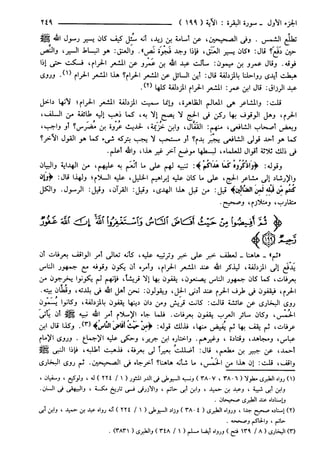 الجزء الأول ـ سورة البقرة : الآية ( ١٩٩ ) ٢٤٩
تطلع الشمس . وفي الصحيحين، عن أسامة بن زيد، أنه سئل كيف كان يسير رسول الله ﷺ
حين دفع؟ قال: «كان يسير العَنَق، فإذا وجد فجوة نَص». والعنق: هو انبساط السير، والنص
فوقه. وقال عمرو بن ميمون: سألت عبد الله بن عمرو عن المشعر الحرام، فسكت حتى إذا
هبطت أيدي رواحلنا بالمزدلفة قال: أين السائل عن المشعر الحرام؟ هذا المشعر الحرام(١). وروى
عبد الرزاق: قال ابن عمر: المشعر الحرام المزدلفة كلها(٢).
قلت: والمشاعر هي المعالم الظاهرة، وإنما سميت المزدلفة المشعر الحرام، لأنها داخل
الحرم، وهل الوقوف بها ركن في الحج لا يصح إلا به، كما ذهب إليه طائفة من السلف،
وبعض أصحاب الشافعي، منهم: القفّال، وابن خزيمة، لحديث عروة بن مضرس؟ أو واجب،
كما هو أحد قولي الشافعي يجبر بدم؟ أو مستحب لا يجب بتركه شيء كما هو القول الآخر؟
في ذلك ثلاثة أقوال للعلماء، لبسطها موضع آخر غير هذا، والله أعلم.
وقوله: ﴿وَاذْكُرُوهُ كَمَا هَدَاكُمْ﴾: تنبيه لهم على ما أنعم به عليهم، من الهداية والبيان
والإرشاد إلى مشاعر الحج، على ما كان عليه إبراهيم الخليل، عليه السلام، ولهذا قال: ﴿وَإِن
كُنتُم مِّن قَبْلِهِ لَمِنَ الضَّالِّينَ﴾ قيل: من قبل هذا الهدي، وقيل: القرآن، وقيل: الرسول. والكل
متقارب، ومتلازم، وصحيح.
ثُمَّ أَفِيضُوا مِنْ حَيْثُ أَفَاضَ النَّاسُ وَاسْتَغْفِرُوا اللَّهَ إِنَّ اللَّهَ غَفُورٌ
رَّحِيمٌ ﴿١٩٩﴾
«ثم» ـ هاهنا ـ لعطف خبر على خبر وترتيبه عليه، كأنه تعالى أمر الواقف بعرفات أن
يدفع إلى المزدلفة، ليذكر الله عند المشعر الحرام، وأمره أن يكون وقوفه مع جمهور الناس
بعرفات، كما كان جمهور الناس يصنعون، يقفون بها إلا قريشاً، فإنهم لم يكونوا يخرجون من
الحرم، فيقفون في طرف الحرم عند أدنى الحل، ويقولون: نحن أهل الله في بلدته، وقطان بيته.
روى البخاري عن عائشة قالت: كانت قريش ومن دان دينها يقفون بالمزدلفة، وكانوا يسمون
الحُمْس، وكان سائر العرب يقفون بعرفات. فلما جاء الإسلام أمر الله نبيه ﷺ أن يأتي
عرفات، ثم يقف بها ثم يفيض منها، فذلك قوله: ﴿مِنْ حَيْثُ أَفَاضَ النَّاسُ﴾(٣). وكذا قال ابن
عباس، ومجاهد، وقتادة، وغيرهم. واختاره ابن جرير، وحكى عليه الإجماع. وروى الإمام
أحمد، عن جبير بن مطعم، قال: أضللت بعيراً لي بعرفة، فذهبت أطلبه، فإذا النبي ﷺ
واقف، قلت: إن هذا من الحمس، ما شأنه هاهنا؟ أخرجاه في الصحيحين. ثم روى البخاري
(١) رواه الطبري مطولاً (٣٨٠٦، ٣٨٠٧) ونسبه السيوطي في الدر المنثور (١/ ٢٢٤) له، ولوكيع، وسفيان،
وابن أبي شيبة، وعبد بن حميد، وابن أبي حاتم، والأزرقي في تاريخ مكة، والبيهقي في السنن.
وإسناداه عند الطبري صحيحان.
(٢) إسناده صحيح جداً، ورواه الطبري (٣٨٠٤) وزاد السيوطي (١/ ٢٢٤) أنه رواه عبد بن حميد، وابن أبي
حاتم، والحاكم وصححه.
(٣) البخاري (٨/ ١٣٩ فتح) ورواه أيضاً مسلم (١/ ٣٤٨) والطبري (٣٨٣١).